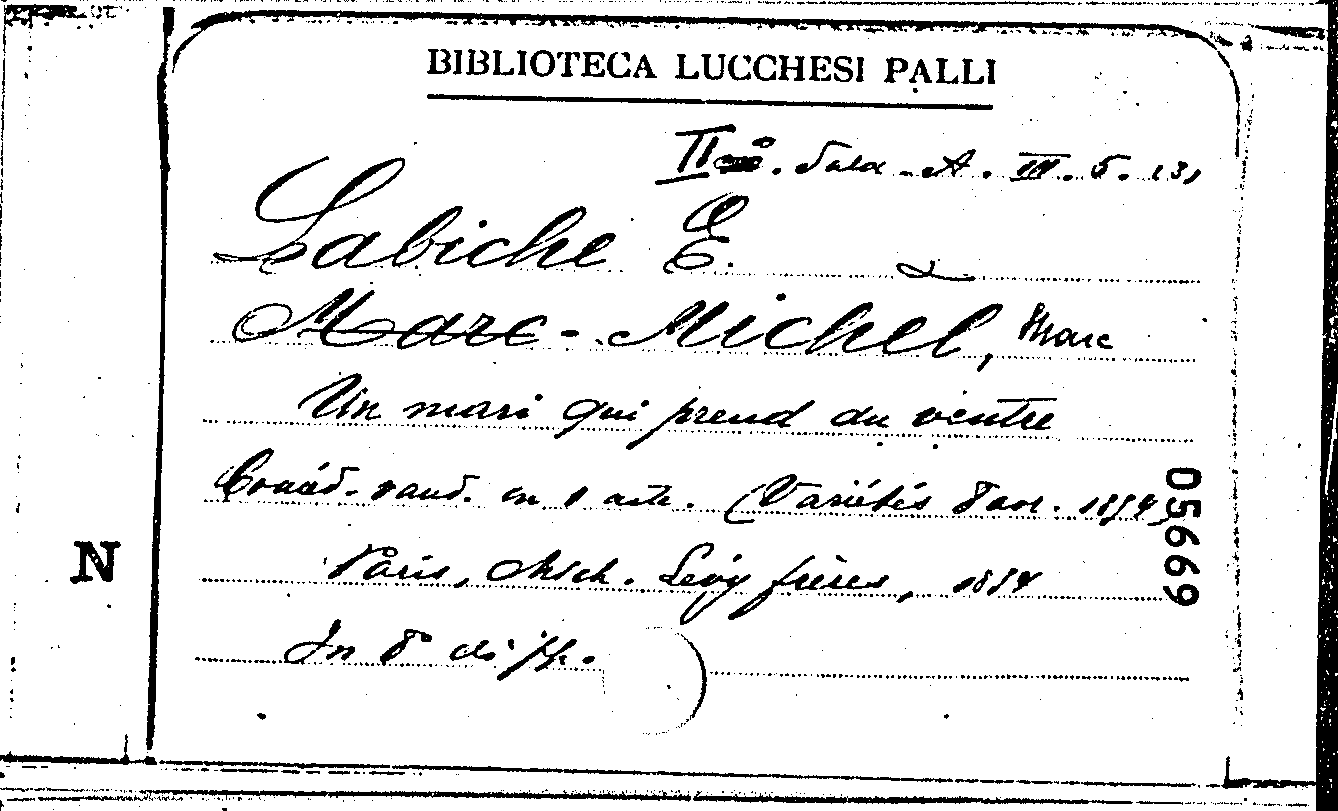 BIBLIOTECA LUCCHESI PALLI
IIa. Sala. A. III. 5. 13,
Labiche E.
Marc-Michel, Marc
Un mari qui prend du ventre
Coméd. vaud. en 1 acte. (Variétés 8 avr. 1854)
Paris, Mich. Levy frères, 1854
In 8° di pp.
N
05669